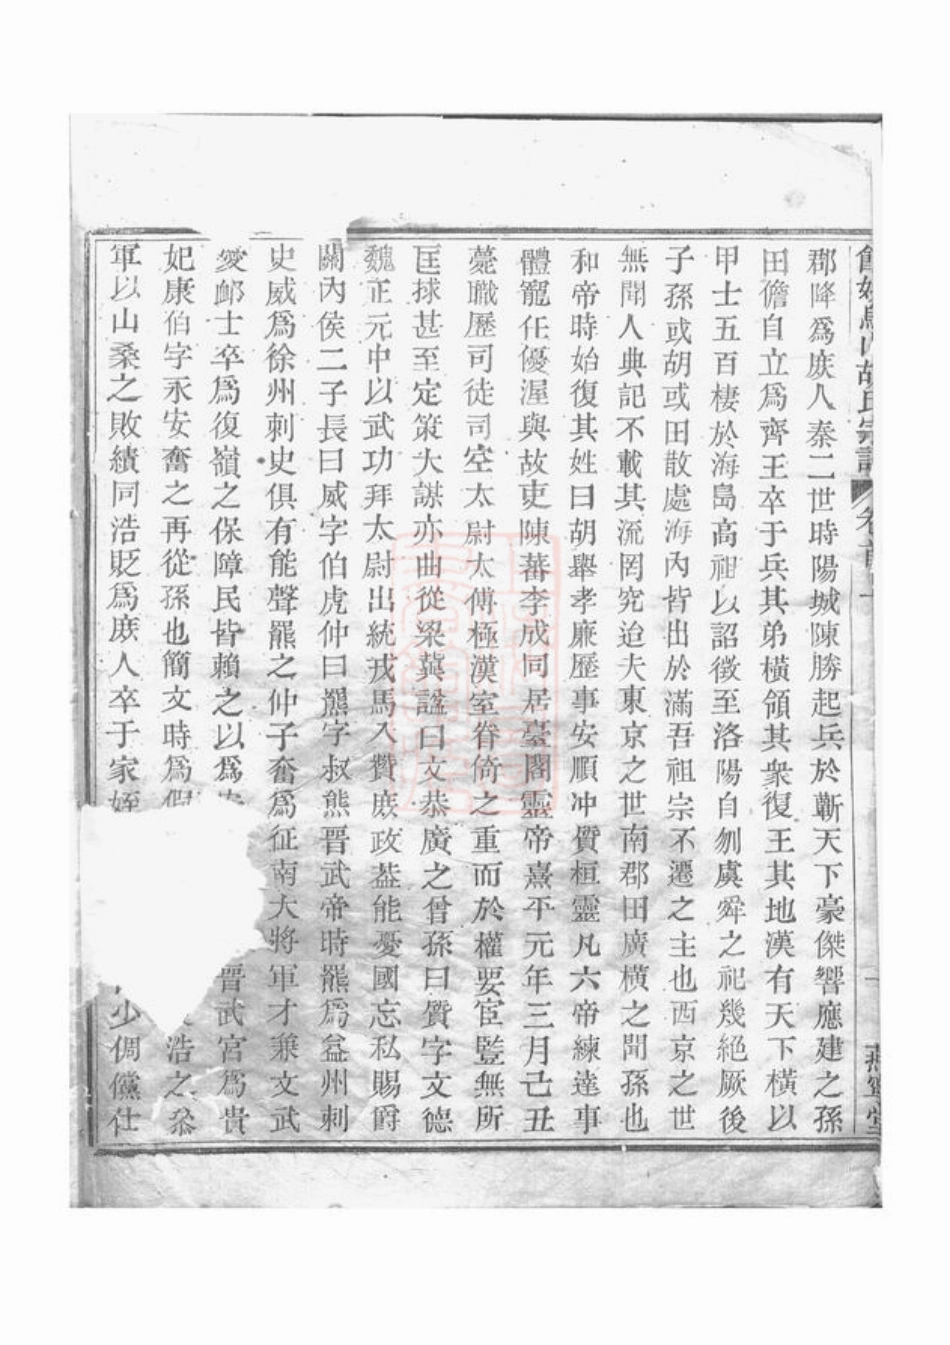 胡氏宗譜
郡降為庶人秦二世時陽城陳勝起兵於蘄天下豪傑響應建之孫
田儋自立為齊王卒于兵其弟橫領其衆復王其地漢有天下橫以
甲士五百棲於海島高祖以詔徵至洛陽自刎虞舜之祀幾絕厥後
子孫或胡或田散處海內皆出於滿吾祖宗不遷之主也西京之世
無聞人典記不載其流罔究迨夫東京之世南郡田廣橫之聞孫也
和帝時始復其姓曰胡舉孝廉歷事安順冲質桓靈凡六帝練達事
體寵任優渥與故吏陳蕃李咸同居臺閣靈帝熹平元年三月己丑
薨職歷司徒司空太尉太傅極漢室眷倚之重而於權要宦豎無所
匡捄甚至定策大謀亦曲從梁冀諡曰文恭廣之曾孫曰質字文德
魏正元中以武功拜太尉出統戎馬入贊庶政葢能憂國忘私賜爵
關內侯二子長曰威字伯虎仲曰羆字叔熊晋武帝時羆為益州刺
史威為徐州刺史俱有能聲羆之仲子奮為征南大將軍才兼文武
愛卹士卒為復嶺之保障民皆賴之以為晋武宮為貴
妃康伯字永安奮之再從孫也簡文時為浩之叅
軍以山桑之敗績同浩貶為庶人卒于家姪少倜儻仕